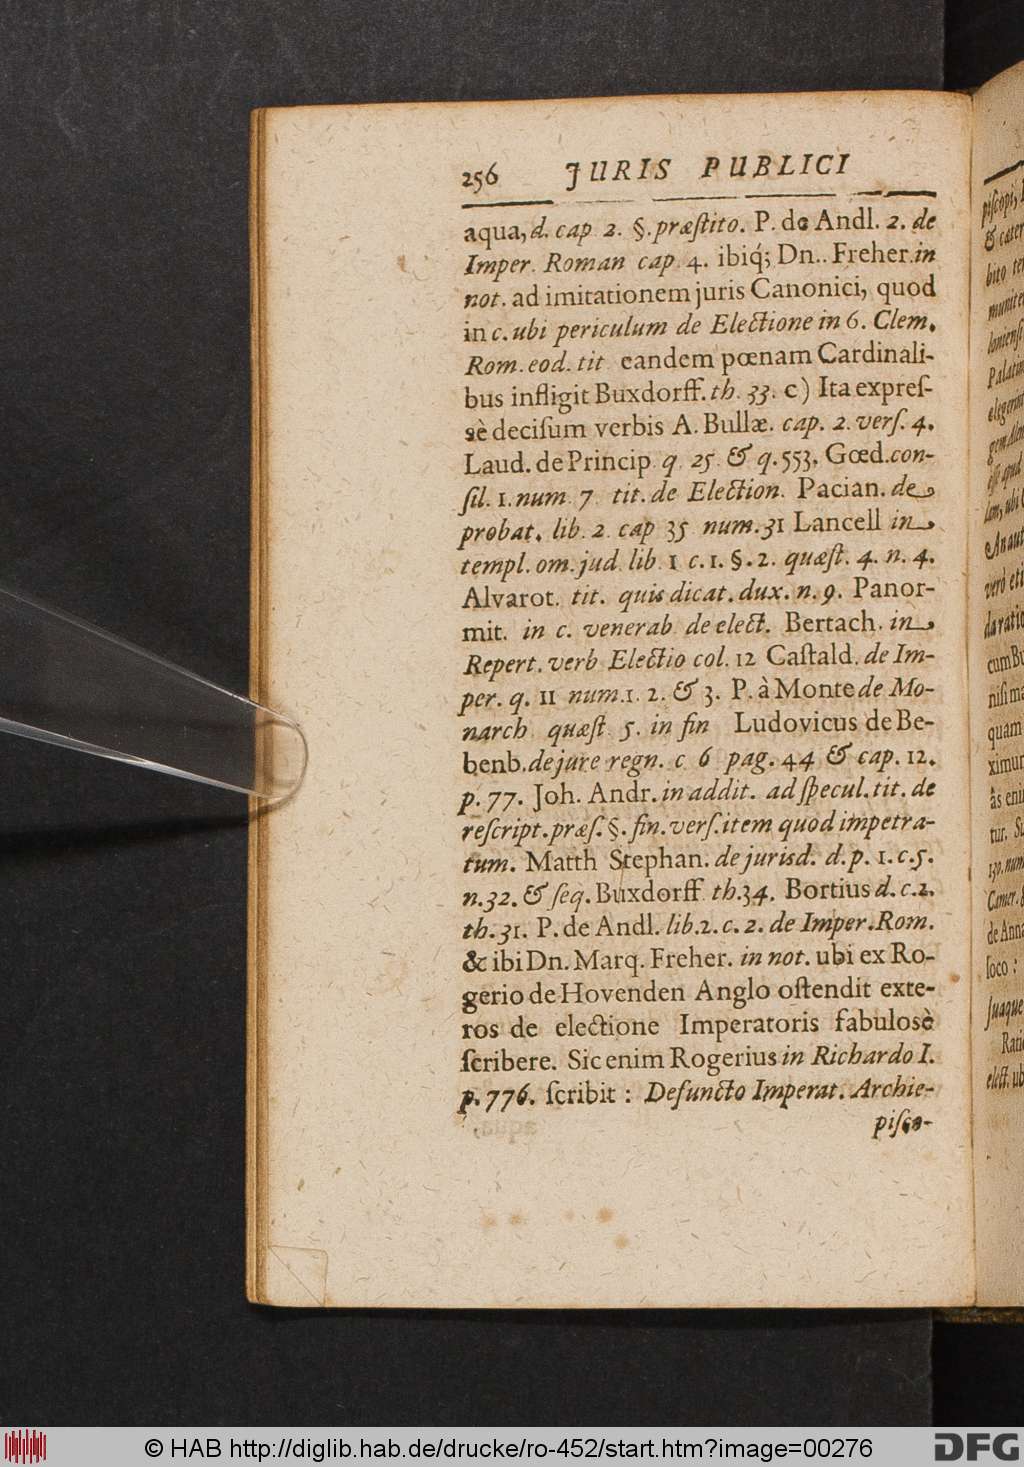 256 JURIS PUBLICI
aqua, d. cap 2. §. præſtito. P. de Andl. 2. de
Imper. Roman cap. 4. ibiq́; Dn.. Freher. in
not. ad imitationem juris Canonici, quod
in c. ubi periculum de Electione in 6. Clem.
Rom. eod. tit eandem pœnam Cardinali-
bus infligit Buxdorff. th. 33. c) Ita expreſ-
sè deciſum verbis A. Bullæ. cap. 2. verſ. 4.
Laud. de Princip q. 25. & q. 553. Gœd. con-
ſil. 1. num. 7 tit. de Election. Pacian. de
probat. lib. 2. cap 35 num. 31 Lancell in
templ. om. jud. lib. 1 c. 1. §. 2. quæſt. 4. n. 4.
Alvarot. tit. quis dicat. dux. n. 9. Panor-
mit. in c. venerab de elect. Bertach. in
Repert. verb Electio col. 12 Caſtald. de Im-
per. q. 11 num. 1. 2. & 3. P. à Monte de Mo-
narch quæſt 5. in fin Ludovicus de Be-
benb. de jure regn. c 6 pag. 44 & cap. 12.
p. 77. Joh. Andr. in addit. ad ſpecul. tit. de
reſcript. præſ. §. fin. verſ. item quod impetra-
tum. Matth Stephan. de jurisd. d. p. 1. c. 5.
n. 32. & ſeq. Buxdorff th. 34. Bortius d. c. 2.
th. 31. P. de Andl. lib. 2. c. 2. de Imper. Rom.
& ibi Dn. Marq. Freher. in not. ubi ex Ro-
gerio de Hovenden Anglo oſtendit exte-
ros de electione Imperatoris fabulosè
ſcribere. Sic enim Rogerius in Richardo I.
p. 776. ſcribit : Defuncto Imperat. Archie-
piſco-
piſcopi,
& cater
bito te
munite
Palatin
elegerint
vero eti
cum Bu
niſi ma
quam
ximur
âs eni
tur. Si
130. num
Camer.
de Anna
loco :
ſuaque
Rati
elect. ub
© HAB http://diglib.hab.de/drucke/ro-452/start.htm?image=00276
DFG